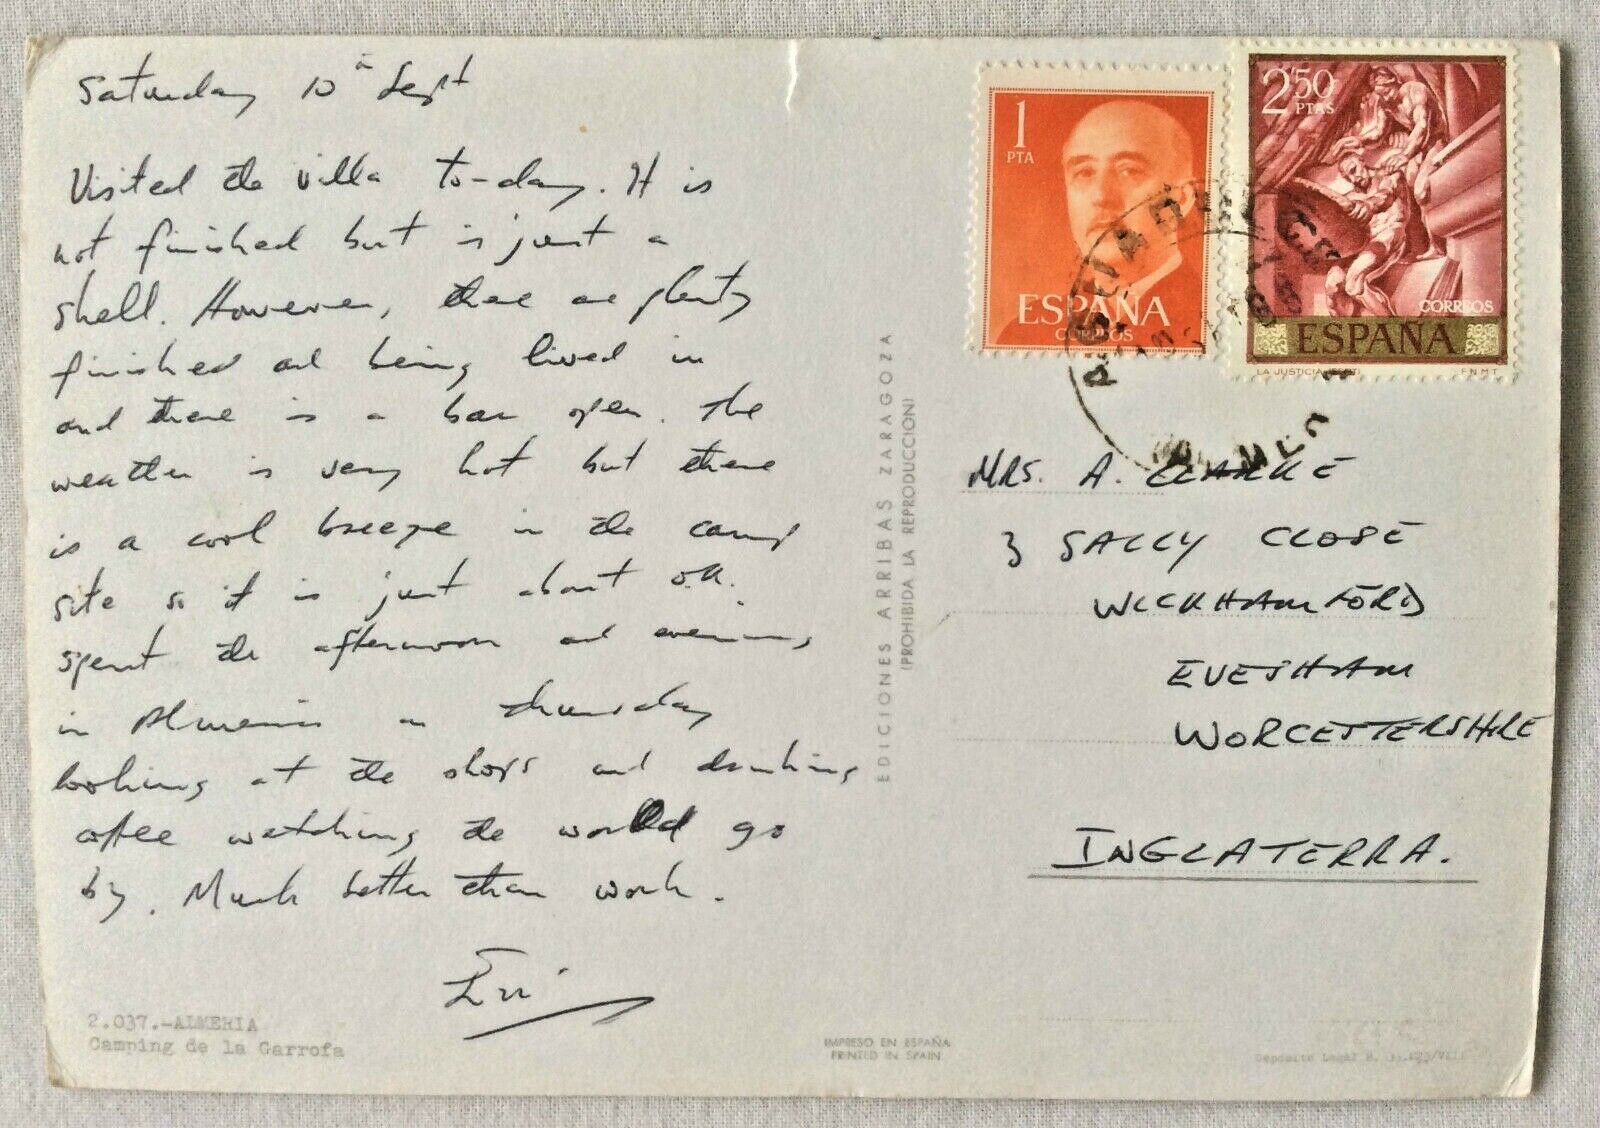 Saturday 10th Sept
Visited the villa to-day. It is
not finished but is just a
shell. However, there are plenty
finished and being lived in
and there is a bar open. The
weather is very hot but there
is a cool breeze in the camp
site so it is just about O.K.
Spent the afternoon and evening
in Almeria on Thursday
looking at the shops and drinking
coffee watching the world go
by. Much better than work.
Eric
2.037.-ALMERIA
Camping de la Garrofa
EDICIONES ARRIBAS ZARAGOZA
(PROHIBIDA LA REPRODUCCION)
IMPRESO EN ESPAÑA
PRINTED IN SPAIN
1
PTA
ESPAÑA
CORREOS
2'50
PTAS
CORREOS
ESPAÑA
LA JUSTICIA
F.N.M.T.
MRS. A. CLARKE
3 SALLY CLOSE
WICKHAMFORD
EVESHAM
WORCESTERSHIRE
INGLATERRA.
Deposito Legal B.